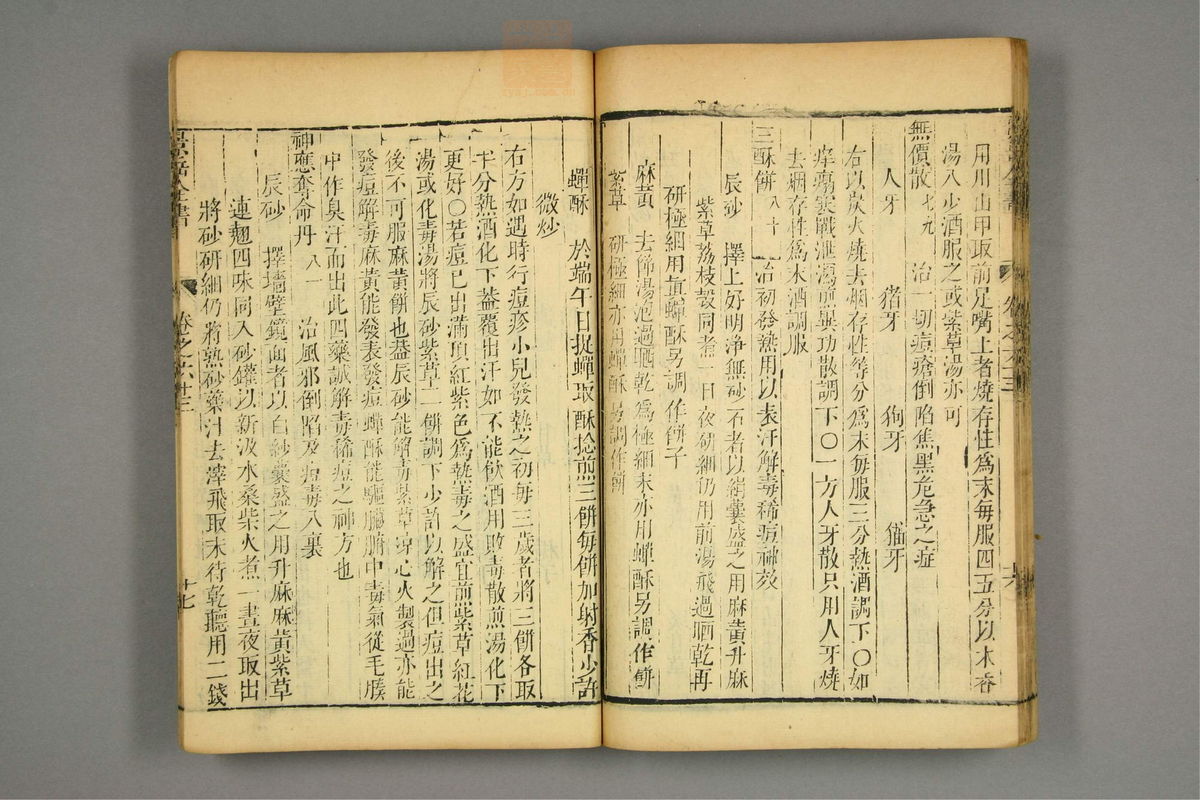 用川山甲取前足嘴上者燒存性爲末每服四五分以木香
湯入少酒服之或紫草湯亦可
無價散 七九 治一切痘瘡倒陷焦黑危急之症
人牙 猪牙 狗牙 猫牙
右以炭火燒去烟存性等分爲末每服三分熱酒調下〇如
痒塌寒戰泄瀉煎異功散調下〇一方人牙散只用人牙燒
去烟存性爲末酒調服
三酥餅 八十 治初發熱用以表汗解毒稀痘神效
辰砂 擇上好明净無砂石者以絹囊盛之用麻黄升麻
紫草荔枝殼同煮一日夜研細仍用前湯飛過晒乾再
研極細用眞蟬酥另調作餅子
麻黄 去節湯泡過晒乾爲極細末亦用蟬酥另調作餅
紫草 研極細亦用蟬酥另調作餅
蟬酥 於端午日捉蟬取酥捻煎三餅每餅加射香少許
微炒
右方如遇時行痘疹小兒發熱之初每三歲者將三餅各取
半分熱酒化下葢覆出汗如不能飲酒用敗毒散煎湯化下
更好〇若痘已出滿頂紅紫色爲熱毒之盛宜煎紫草紅花
湯或化毒湯將辰砂紫草二餅調下少許以解之但痘出之
後不可服麻黄餅也葢辰砂能解毒紫草凉心火製過亦能
發痘解毒麻黄能發表發痘蟬酥能驅臟腑中毒氣從毛腠
中作臭汗而出此四藥誠解毒稀痘之神方也
神應奪命丹 八一 治風邪倒陷及痘毒入裏
辰砂 擇墻壁鏡面者以白紗囊盛之用升麻麻黄紫草
連翹四味同入砂罐以新汲水桑柴火煮一晝夜取出
將砂研細仍將熟砂藥汁去滓飛取末待乾聽用二錢
卷之六十三
十七